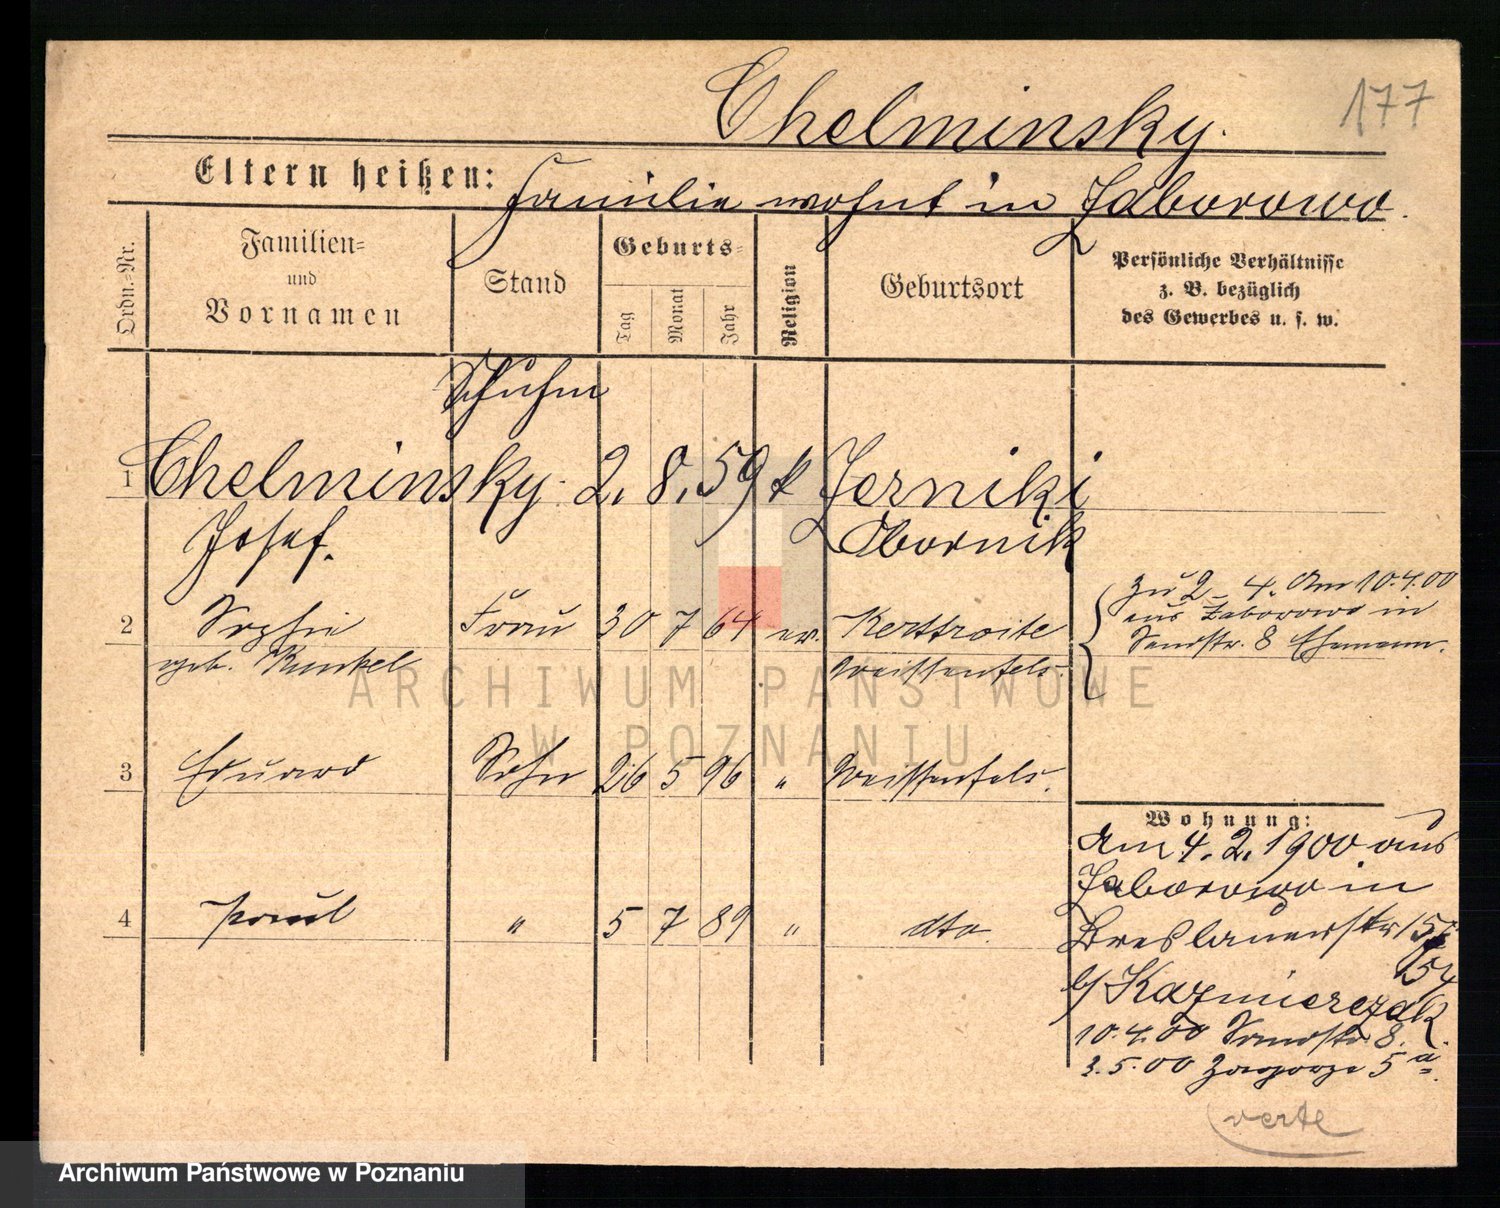 Chelminsky.
177
Eltern heißen: Familie wohnt in Zaborowo.
Ordn.-Nr.
Familien-
und
Vornamen
Stand
Geburts-
Tag
Monat
Jahr
Religion
Geburtsort
Persönliche Verhältnisse
z. B. bezüglich
des Gewerbes u. s. w.
Schuhm
1 Chelminsky. 2. 8. 59 k Zerniki
Josef. Obornik
2 Sophie Frau 30 7 64 ev.
geb. Kunkel Weissenfels.
zu 2-4. Am 10.4.00
aus Zaborowo in
Sandstr. 8 Ehemann.
3 Eduard Sohn 26 5 96 " Weissenfels.
4 Paul " 5 7 89 " dto.
Wohnung:
Am 4. 2. 1900 aus
Zaborowo in
Breslauerstr 15
b/ Kazmierczak
10.4.00 Sandstr 8.
3.5.00 Zagorze 5 a.
verte
ARCHIWUM PAŃSTWOWE
W POZNANIU
Archiwum Państwowe w Poznaniu